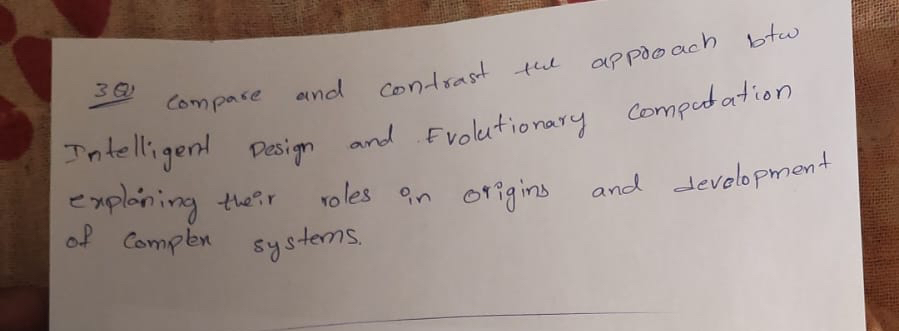 3Q) Compare and contrast the approach btw
Intelligent Design and Evolutionary Computation
explaining their roles in origins and development
of Complex systems.